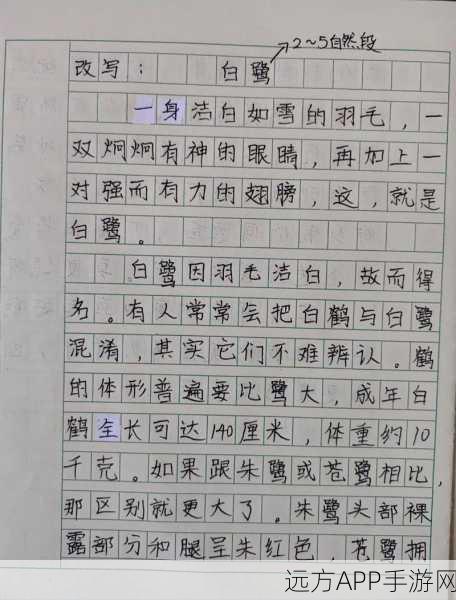 2~5自然段
改写: 白鹭
一身洁白如雪的羽毛,一
双炯炯有神的眼睛,再加上一
对强而有力的翅膀,这,就是
白鹭。
白鹭因羽毛洁白,故而得
名。有人常常会把白鹤与白鹭
混淆,其实它们不难辨认。鹤
的体形普遍要比鹭大,成年白
鹤全长可达140厘米,体重约10
千克。如果跟朱鹭或苍鹭相比,
那区别就更大了。朱鹭头部裸
露部分和腿呈朱红色,苍鹭拥
远方APP手游网